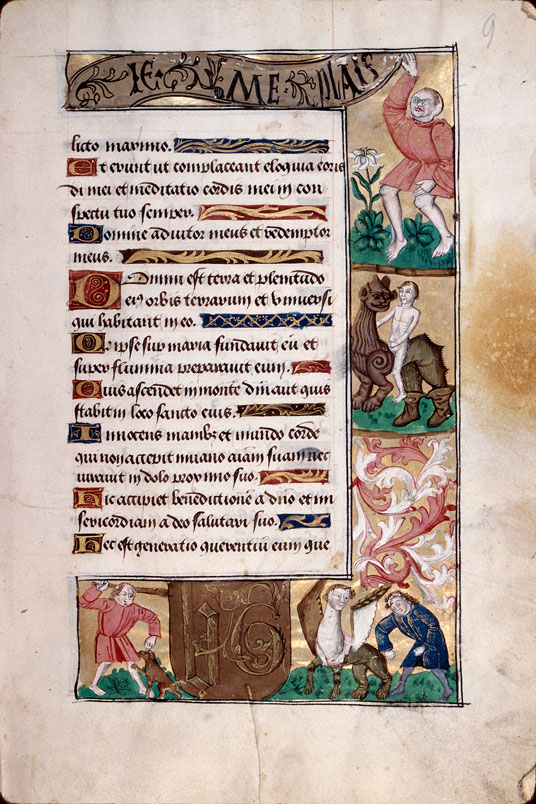 9
IE · N · ME · PLAIS
licto maximo.
Et erunt ut complaceant eloquia oris
di mei et meditatio cordis mei in con
spectu tuo semper.
Domine adiutor meus et redemptor
meus.
Domini est terra et plenitudo
eius orbis terrarum et universi
qui habitant in eo.
Quia ipse sup maria fundavit eu et
super flumina preparavit eum.
Quis ascendet in monte dm aut quis
stabit in loco sancto eius.
Innocens manibus et mundo corde
qui non accepit in vano aiam suam nec
iuravit in dolo proximo suo.
Hic accipiet benedictione a dno et mi
sericordiam a deo salutari suo.
Hec est generatio querentiu eum que